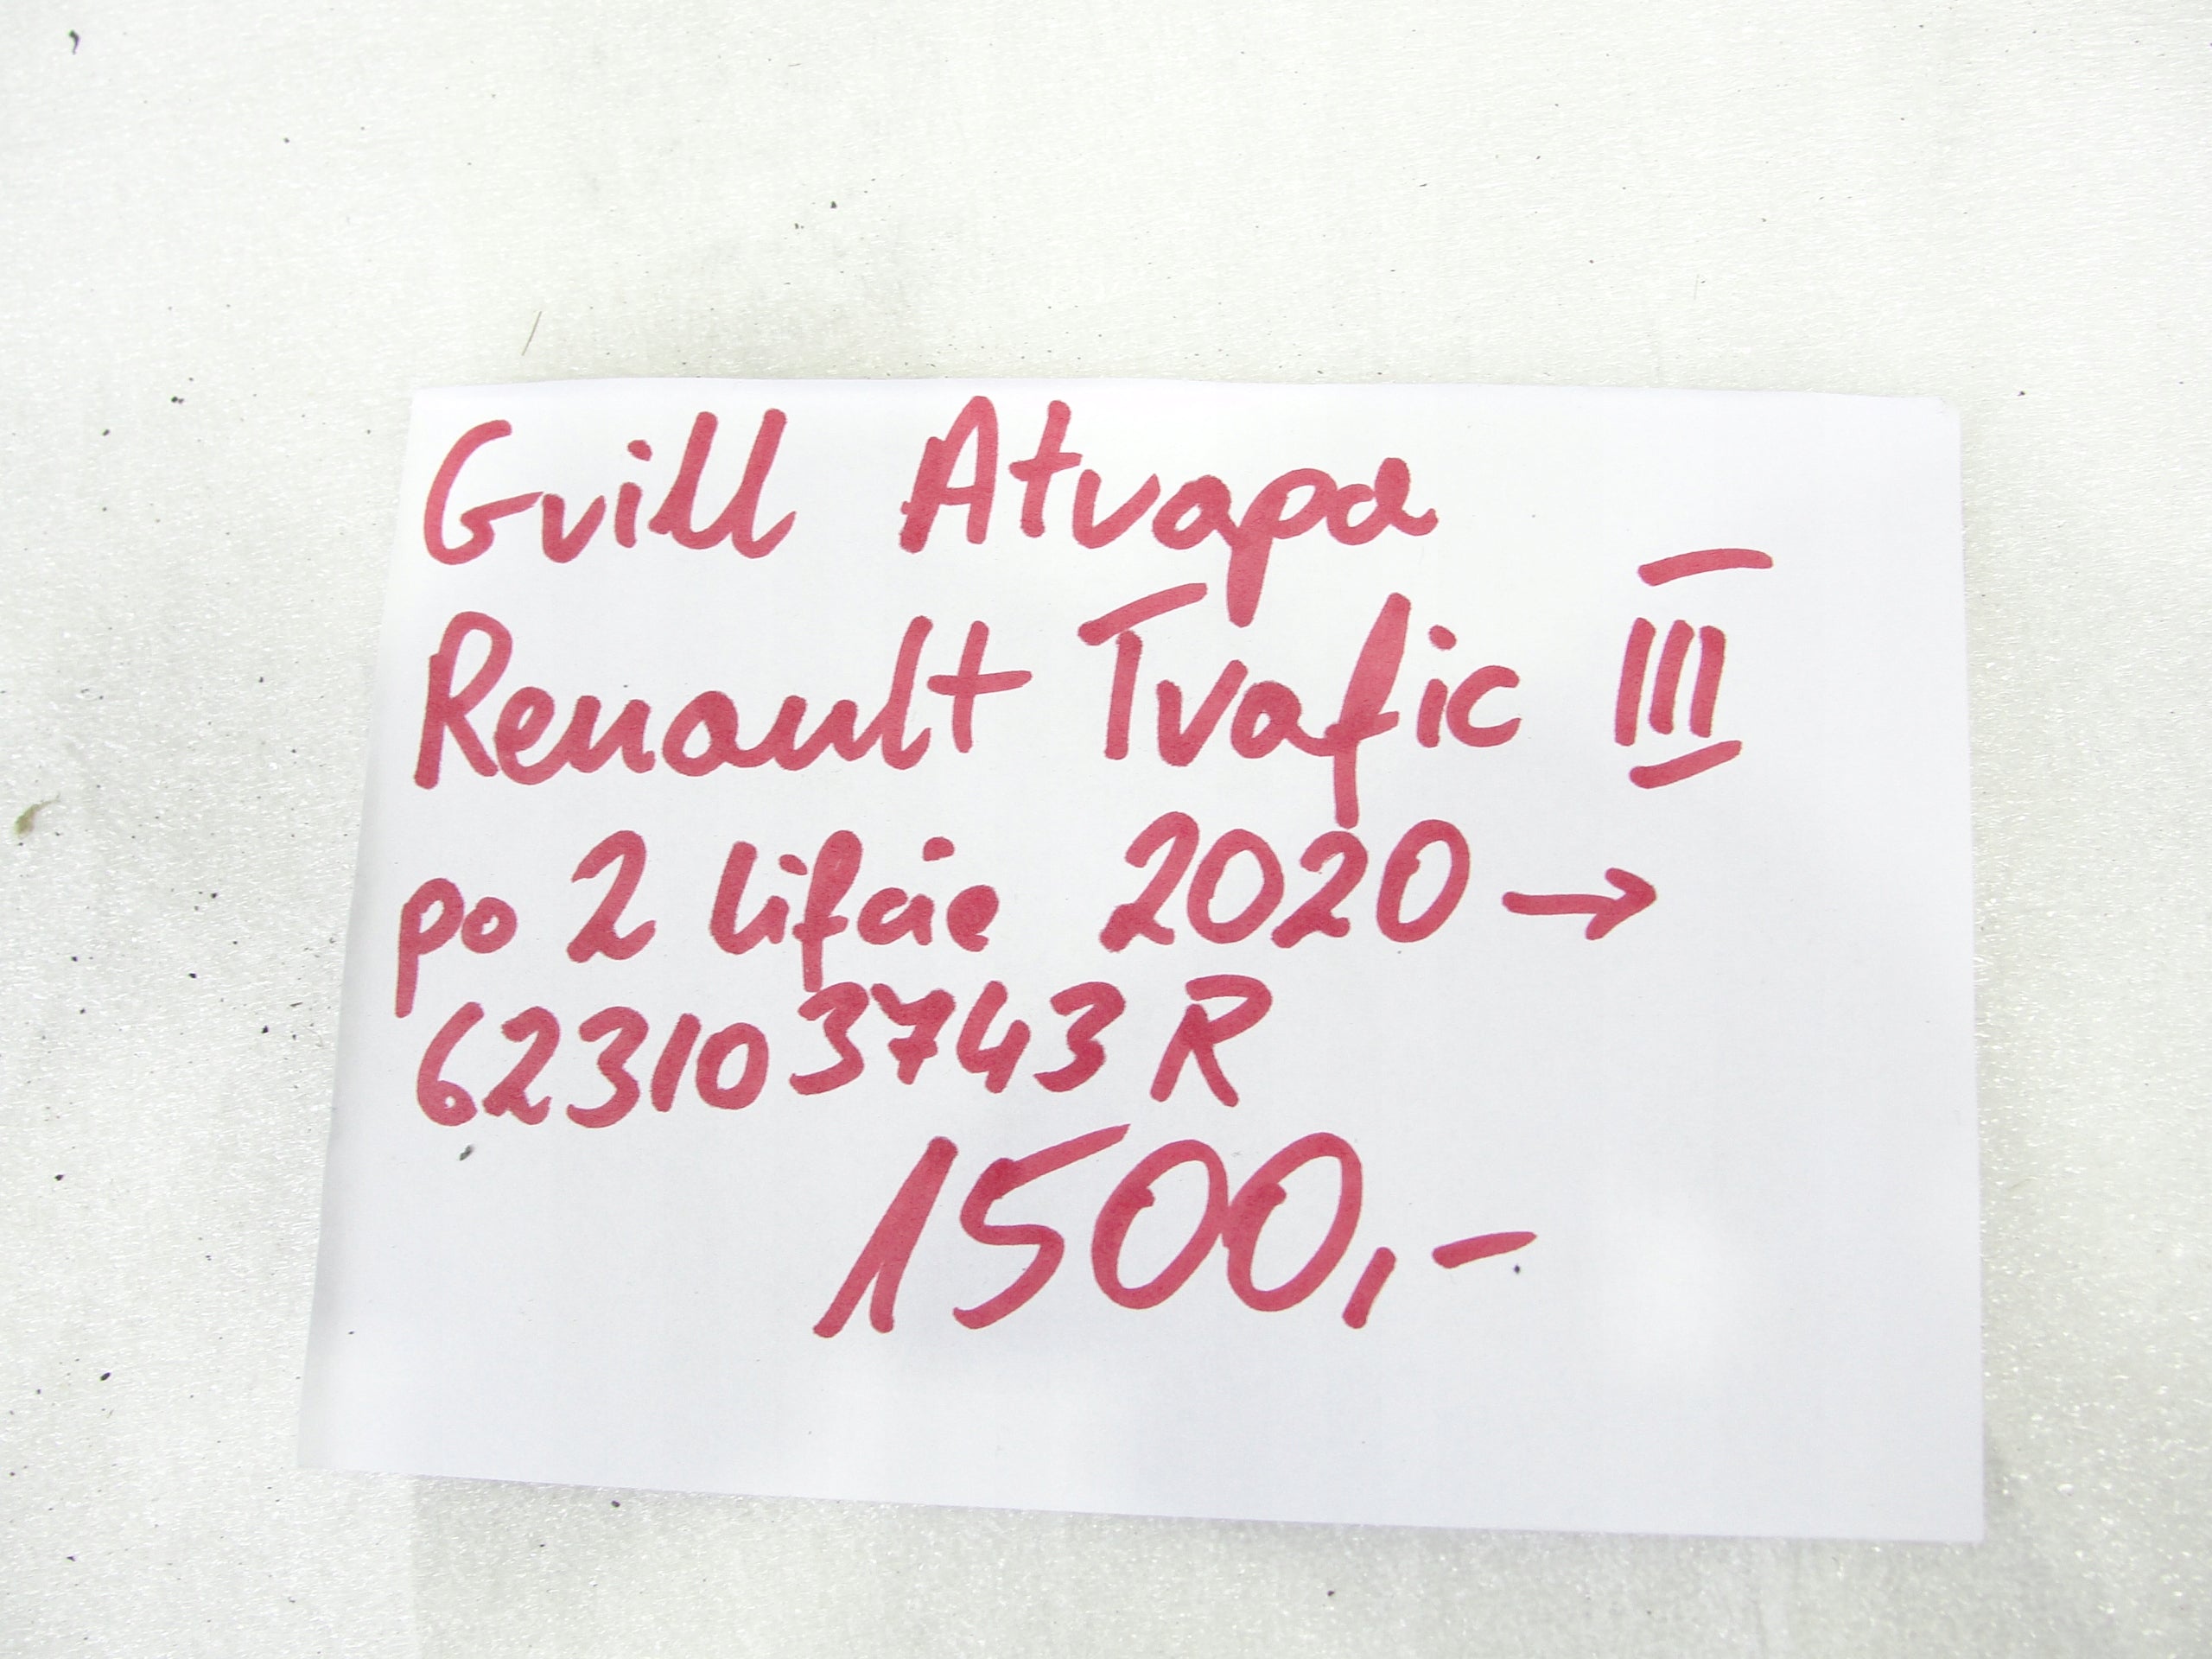 Grill Atrapa
Renault Trafic III
po 2 lifcie 2020 →
623103743R
1500,-